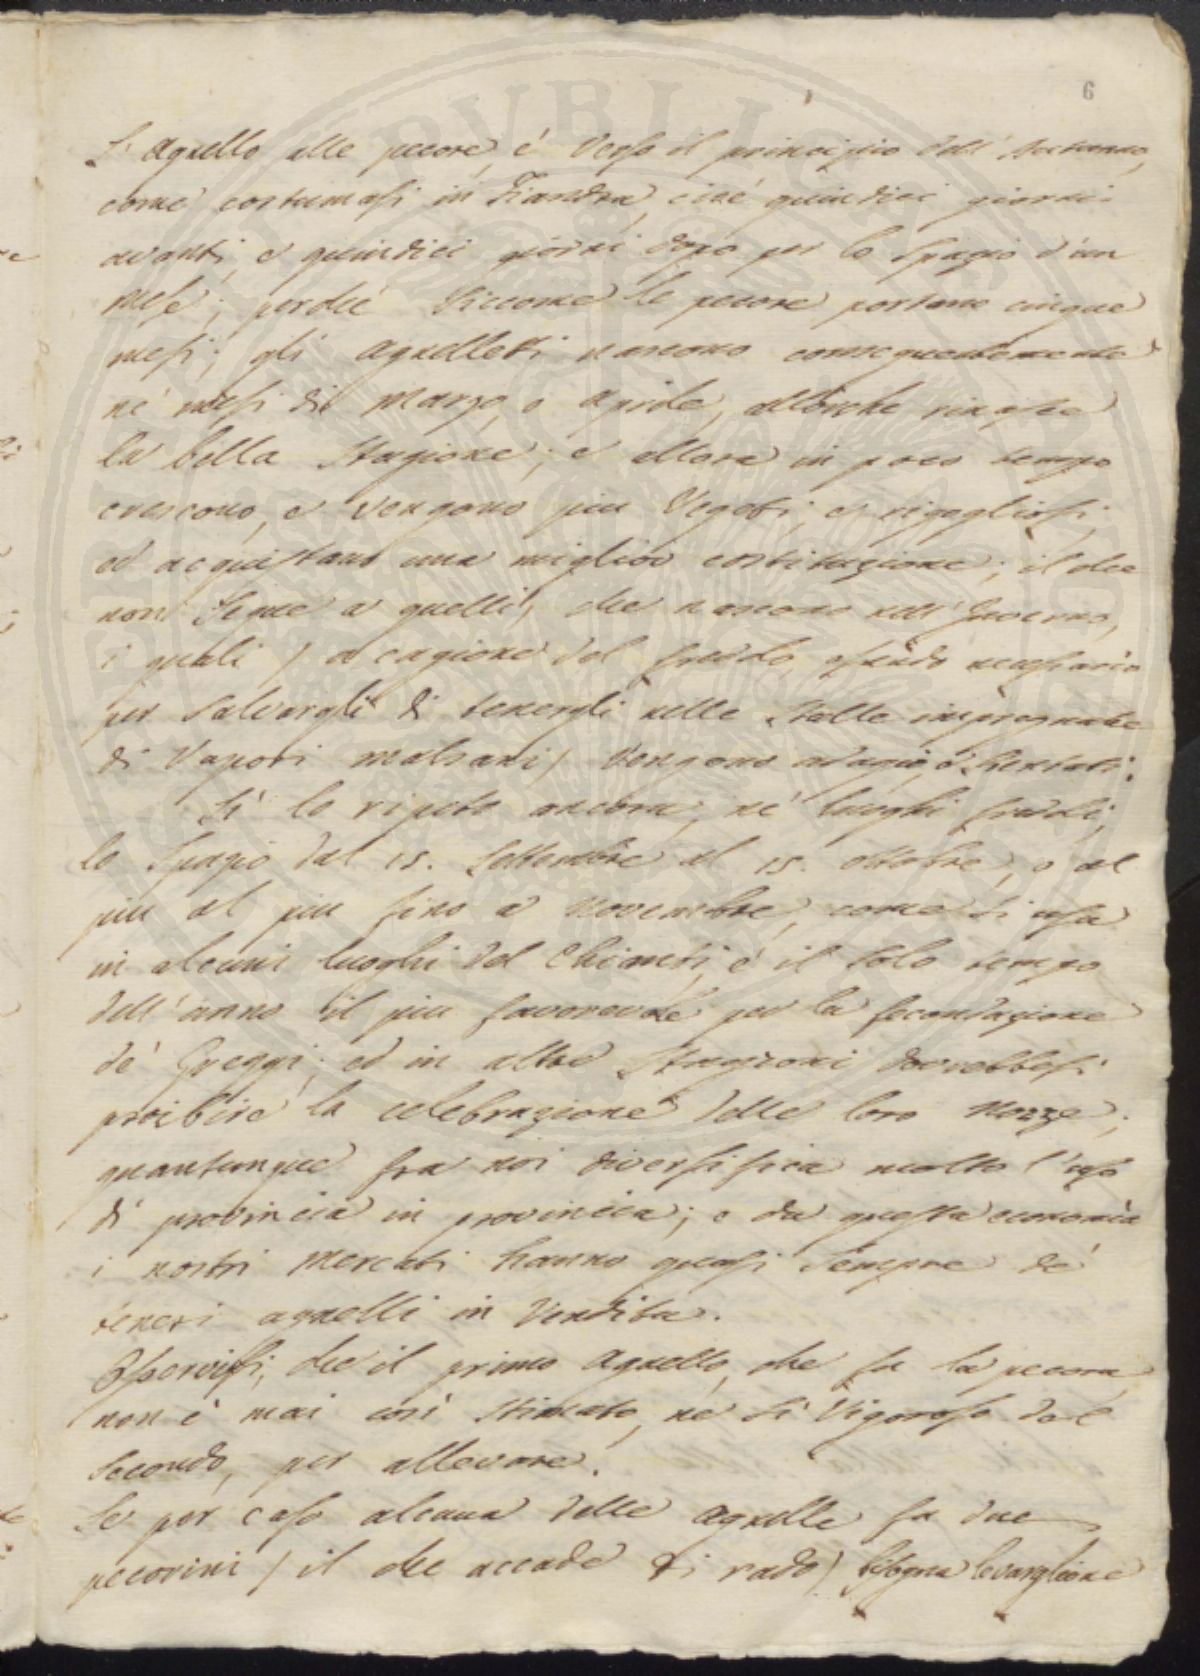 6
L'Agnello alle pecore, è verso il principio dell'Autunno,
come costumasi in Fiandra, cioè quindici giorni
avanti, e quindici giorni dopo per lo spazio d'un
mese; perchè siccome le pecore portano cinque
mesi; gli Agnelletti nascono conseguentemente
nè mesi di Marzo, o Aprile, allorchè rinasce
la bella Stagione; e allora in poco tempo
crescono, e vengono piu vegeti, e rigogliosi,
ed acquistano una miglior costituzione; il che
non segue a quelli, che nascono nell'Inverno,
i quali / a cagione del freddo, essendo necessario
per salvargli di tenergli nelle stalle impregnate
di vapori malsani / vengono adagio, e stentati.
Si lo ripeto ancora, nè luoghi freddi,
lo spazio dal 15. Settembre al 15. ottobre, o al
piu al piu fino a Novembre, come si usa
in alcuni luoghi del Chianti, è il solo tempo
dell'anno il piu favorevole per la fecondazione
de' Greggi; ed in altre Stagioni dovrebbesi
proibire la celebrazione delle loro Nozze;
quantunque fra noi diversifica molto l'uso
di provincia in provincia; e da questa economia
i nostri Mercati hanno quasi sempre de'
teneri agnelli in vendita.
Osservisi, che il primo Agnello, che fa la pecora
non è mai così stimato, nè sì vigoroso del
secondo, per allevare.
Se per caso alcuna delle Agnelle fa due
pecorini / il che accade di rado / bisogna levarglione
SVBLICA